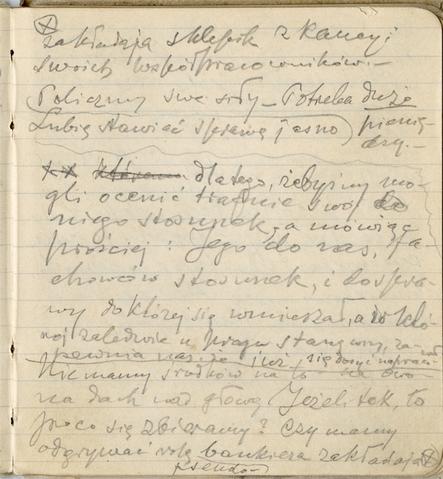 zakładają sklepik z kaucyi
swoich współpracowników.—
Policzmy swe siły — Potrzeba dużo
Lubię stawiać sprawę jasno) pienię
dzy.—
x x dlatego, żebyśmy mo-
gli ocenić trafnie swój do
niego stosunek, a mówiąc
prościej: Jego do nas, fa-
chowców stosunek, i do spra-
wy do której się wmieszał, a w któ
rej zaledwie u progu stanąwszy, za-
pewnia nas, że już się dosyć napraco-
Nie mamy środków na to
na dach nad głową Jeżeli tak, to
poco się zbieramy? Czy mamy
odgrywać rolę bankiera zakładają
pseudo